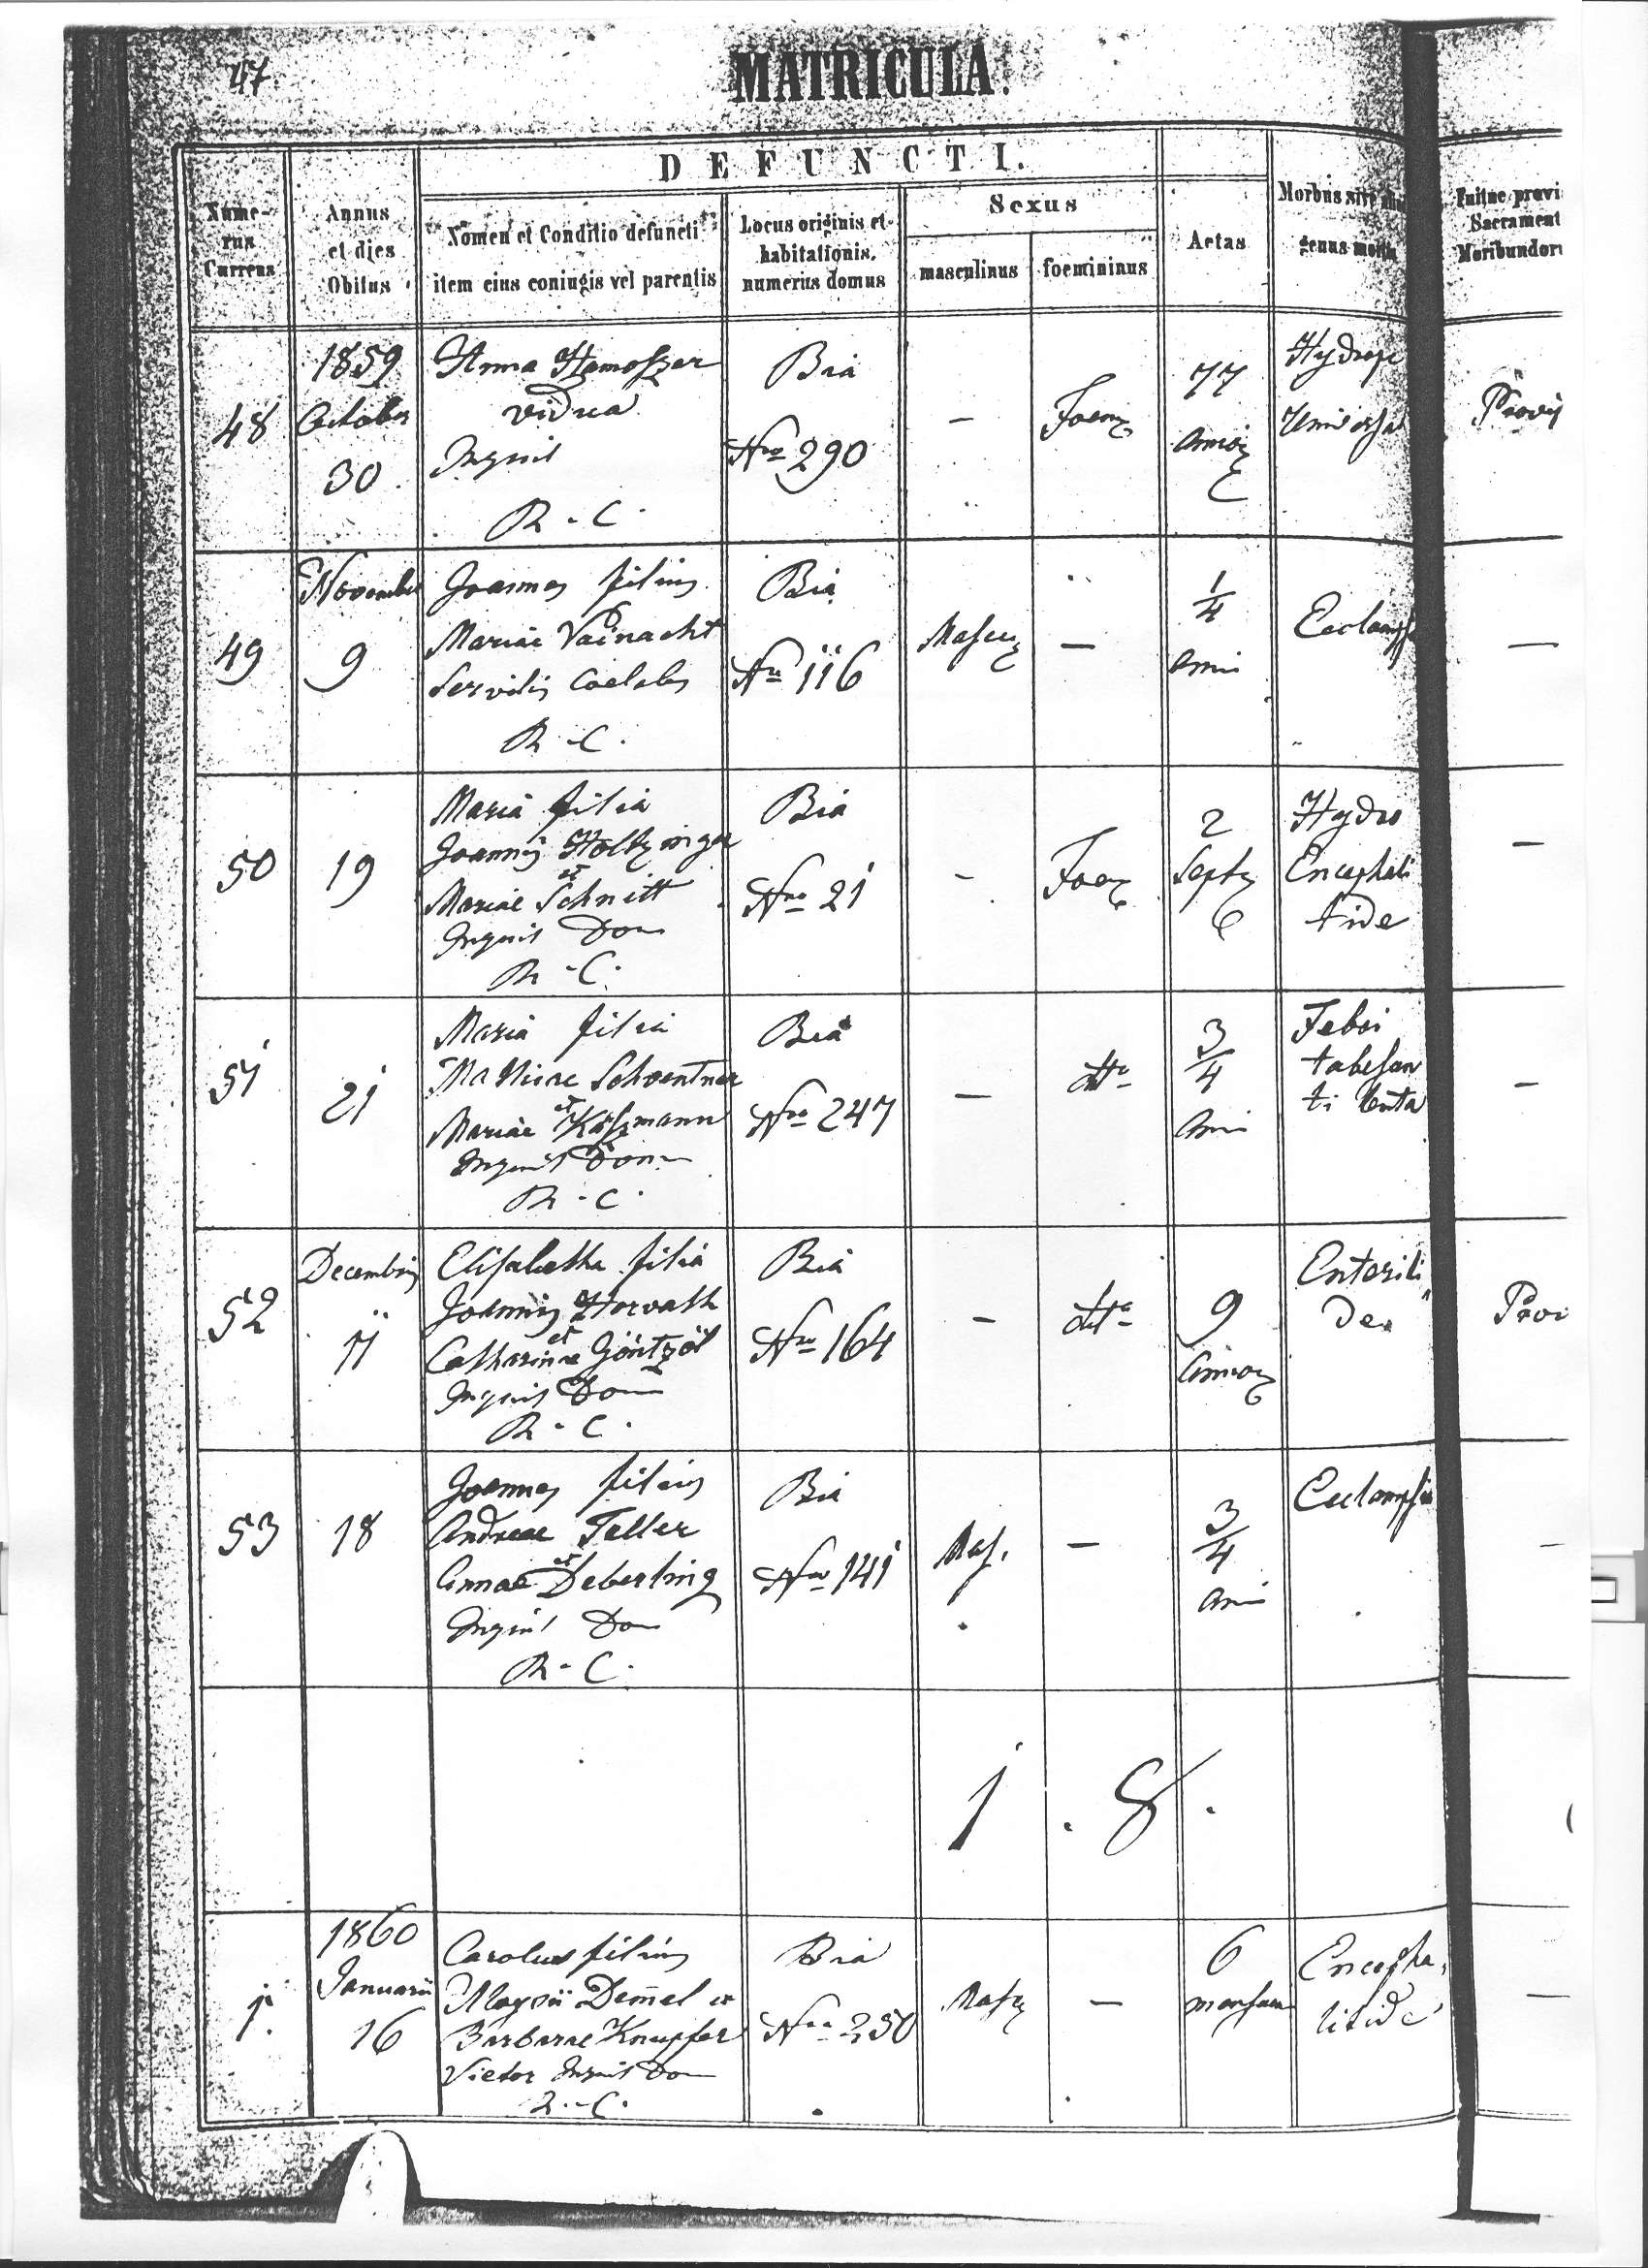 47
MATRICULA.
DEFUNCTI.
Nume-
rus
Currens
Annus
et dies
Obitus
Nomen et Conditio defuncti
item eius coniugis vel parentis
Locus originis et
habitationis,
numerus domus
Sexus
masculinus
foemininus
Aetas
Morbus sive
genus
Fuitne provi
Sacrament
Moribundor
48
1859
October
30
Anna
vidua
Inquil
R. C.
Bia
Nro 290
—
Foem
77
annor
Hydrope
Provi
49
November
9
Joannes filius
Mariae Vainacht
Servilis Coelebs
R. C.
Bia
Nro 116
Mascu
—
1/4
anni
Eclamps
—
50
19
Maria filia
Joannis Holtzinger
et
Mariae Schnitt
Inquil Dom
R. C.
Bia
Nro 21
-
Foem
2
Septi
Hydro
Encephali
tide
—
51
21
Maria filia
Mathiae Schoentner
et
Mariae Kaszmann
Inquil Dom
R. C.
Bia
Nro 247
—
dtto
3/4
Anni
Febri
tabescen
ti lenta
—
52
Decembris
11
Elisabetha filia
Joannis Horvath
et
Catharinae Göntzöl
Inquil Dom
R. C.
Bia
Nro 164
—
dtto
9
annor
Enteriti
de
Provi
53
18
Joannes filius
Andreae Feller
et
Annae Deberling
Inquil Dom
R. C.
Bia
Nro 141
Mas.
—
3/4
Anni
Eclampsia
—
1. 8.
1.
1860
Januarii
16
Carolus filius
Aloysii Demel et
Barbarae Knupfer
Vietor Inquil Dom
R. C.
Bia
Nro 250
Masc
—
6
mensum
Encepha,
litide
—